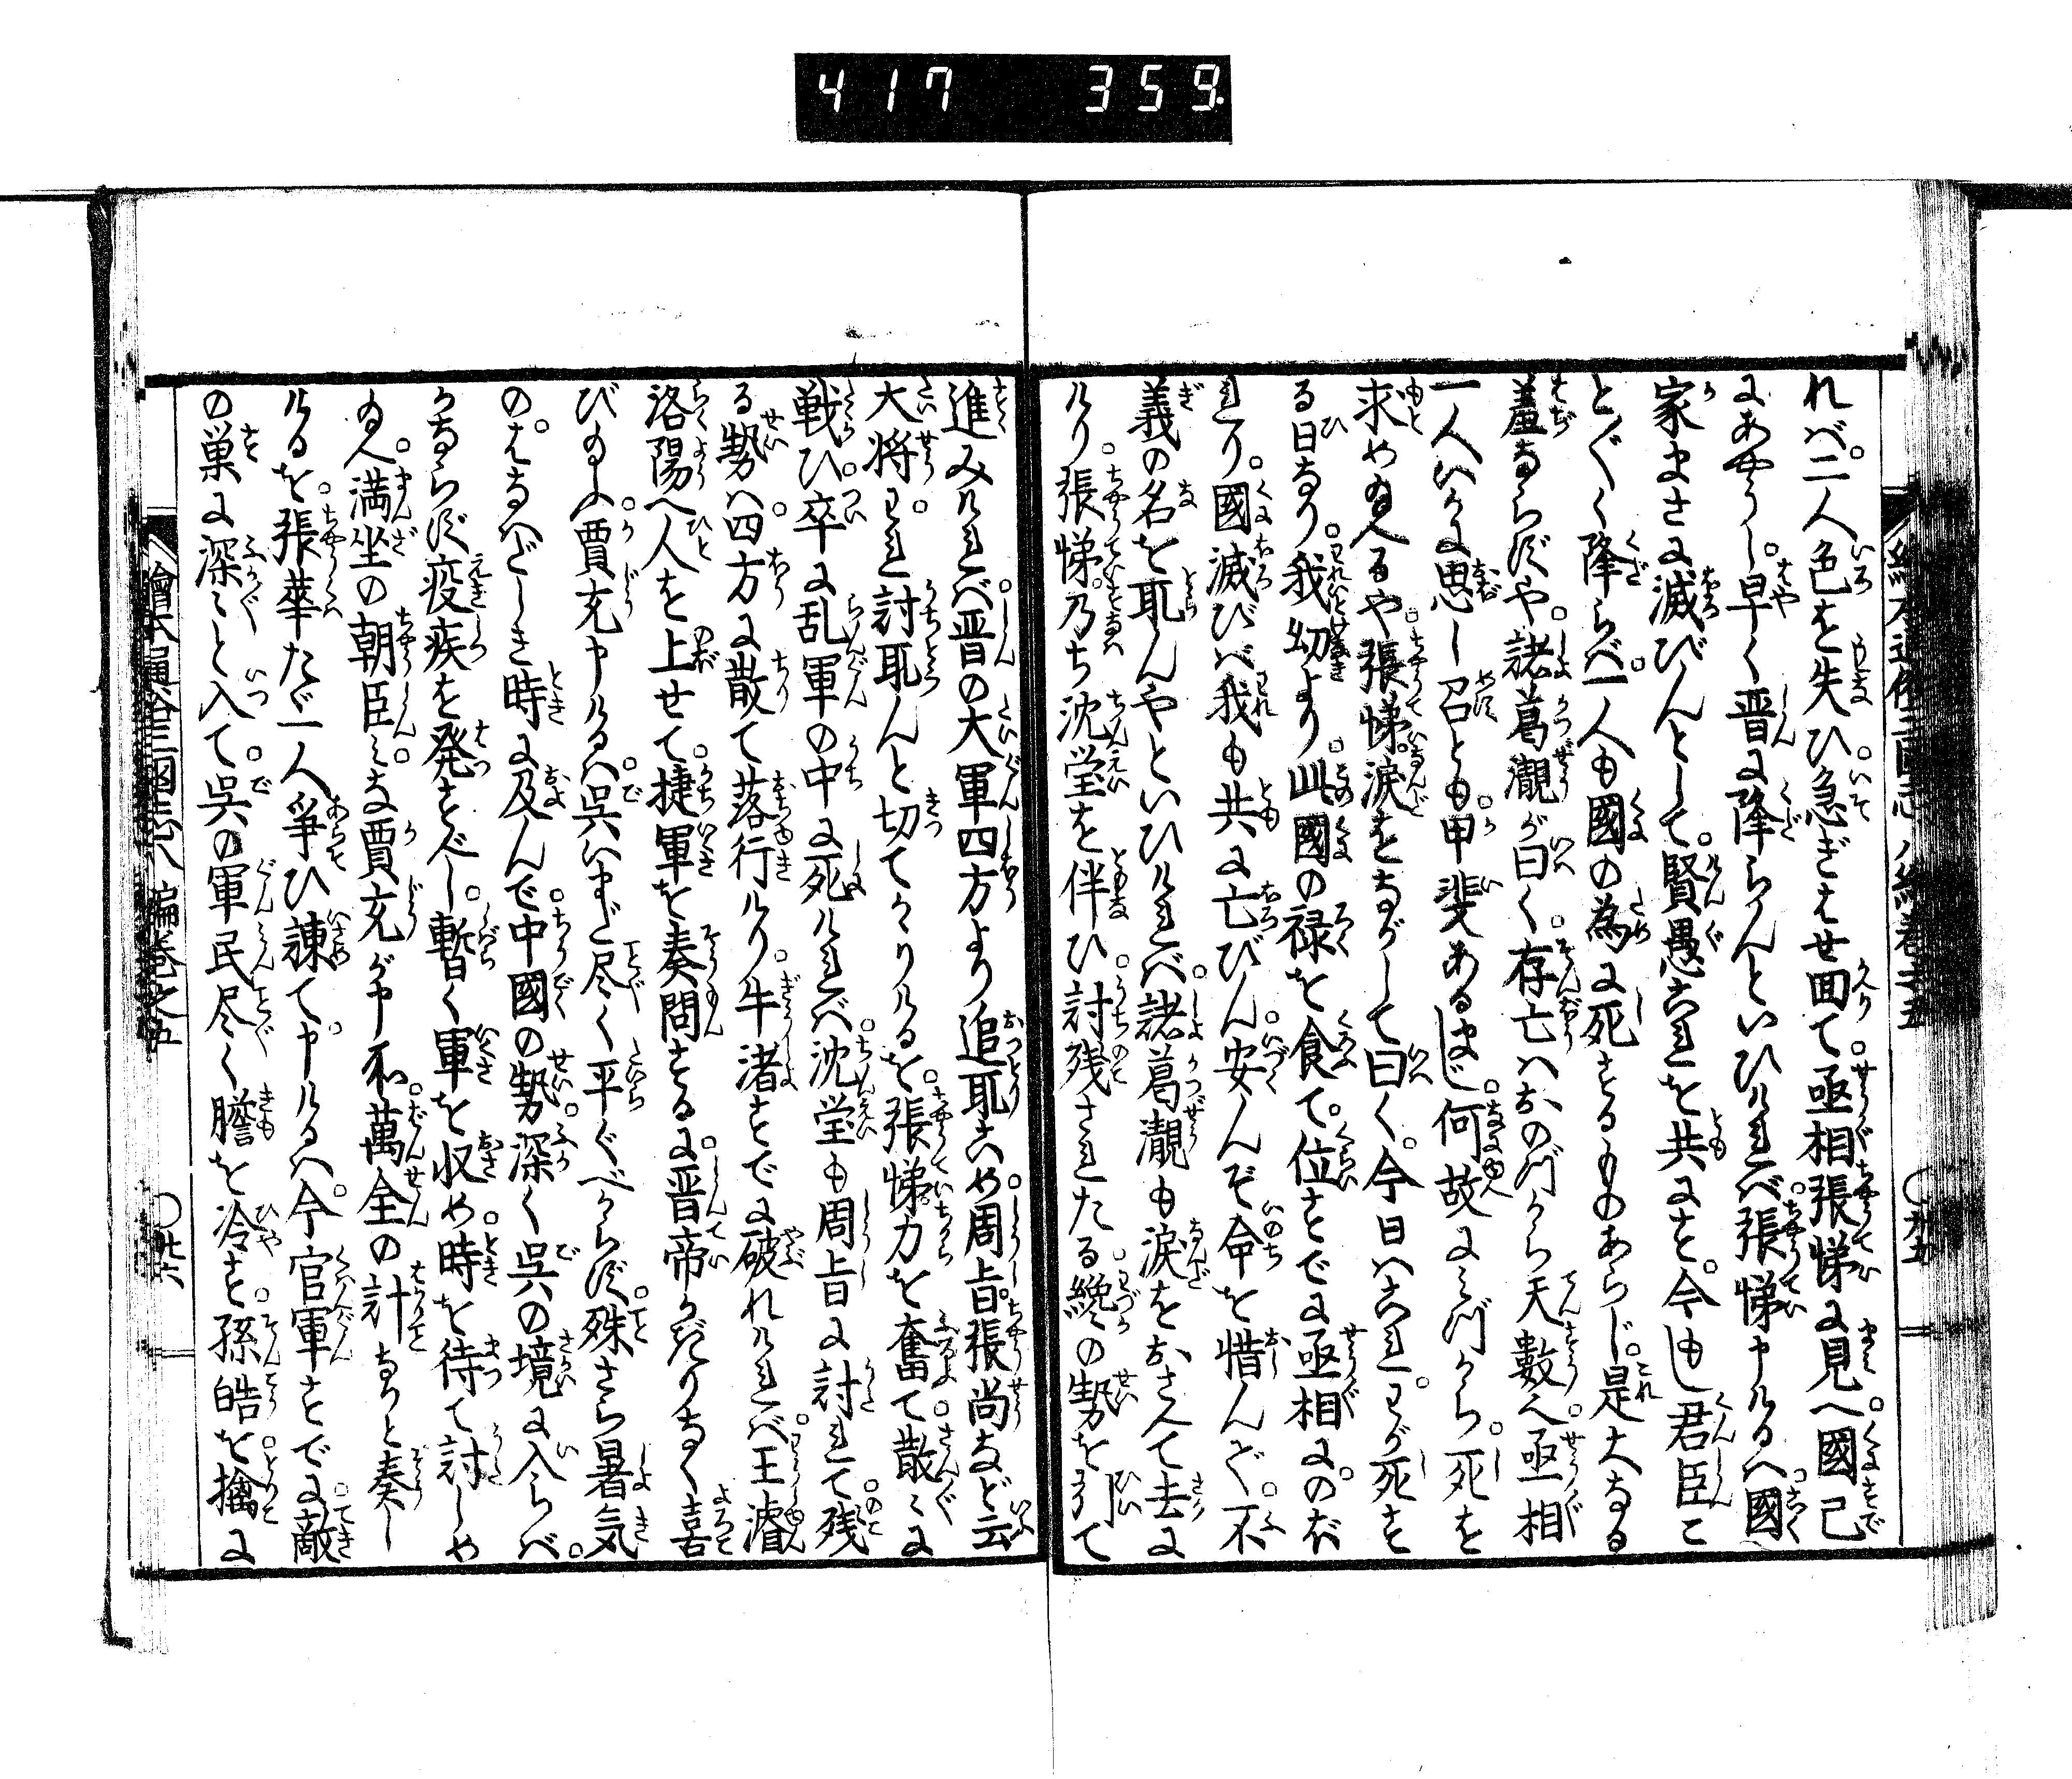 417 359
れバ。二人色を失ひ。急ぎはせ回て。亟相張悌に見へ。國已
にあやうし。早く晋に降らんといひければ。張悌申けるハ。國
家まさに滅びんとして。賢愚これを共にす。今もし君臣こ
とぐ〱く降らバ。一人も國の為に死するものあらじ。是大なる
羞ならずや。諸葛瀨が曰く。存亡ハおのづから天數へ。亟相
一人いかに思し召とも甲斐あるまじ。何故にみづから。死を
求め給へるや。張悌涙をながして曰く。今日ハこれ。わが死す
る日なり。我幼より。此國の禄を食て。位すでに亟相にのぼ
れり。國滅びバ我も共に亡びん。安んぞ命を惜んで。不
義の名を取んやといひければ。諸葛瀨も涙をおさへて去に
けり。張悌乃ち沈莹を伴ひ。討残されたる。纔の勢を引て
進みければ。晋の大軍四方より追取こめ。周旨張尚など云
大将。われ討取んと切てかゝりけるを。張悌力を奮て。散〻に
戦ひ。卒に乱軍の中に死ければ。沈莹も周旨に討れて。残
る勢ハ。四方に散て落行けり。牛渚すでに破れければ。王濬
洛陽へ人を上せて。捷軍を奏問するに。晋帝かぎりなく喜
び給ふ。賈充申けるハ。呉いまだ尽く平ぐべからず。殊さら暑気
のはなハだしき時に及んで。中國の勢。深く呉の境に入らバ。
かならず疫疾を発すべし。暫く軍を収め。時を待て討しや
給へ。満坐の朝臣。みな賈充が申所。萬全の計なりと奏し
けるを。張華たゞ一人爭ひ諌て。申けるハ。今官軍すでに。敵
の巣に深〻と入て。呉の軍民尽く膽を冷す。孫皓を。擒に
繪本通俗三國志八編巻之五
〇廿六